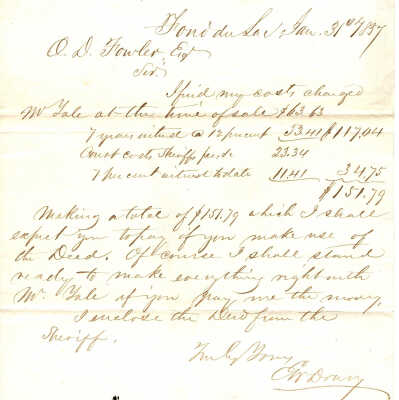 Fond du Lac Jan. 31st 1857
O. D. Fowler Esq
Sir.
I find my costs charged
Mr Yale at the time of sale $63.63
7 years interest @ 12 per cent 53.41 $117.04
Court costs Sheriffs fees &c 23.34
7 per cent interest to date 11.41 34.75
$151.79
Making a total of $151.79 which I shall
expect you to pay if you make use of
the Deed. Of course I shall stand
ready to make everything right with
Mr. Yale if you pay me the money,
I enclose the Deed from the
Sheriff.
Truly Yours
Drury